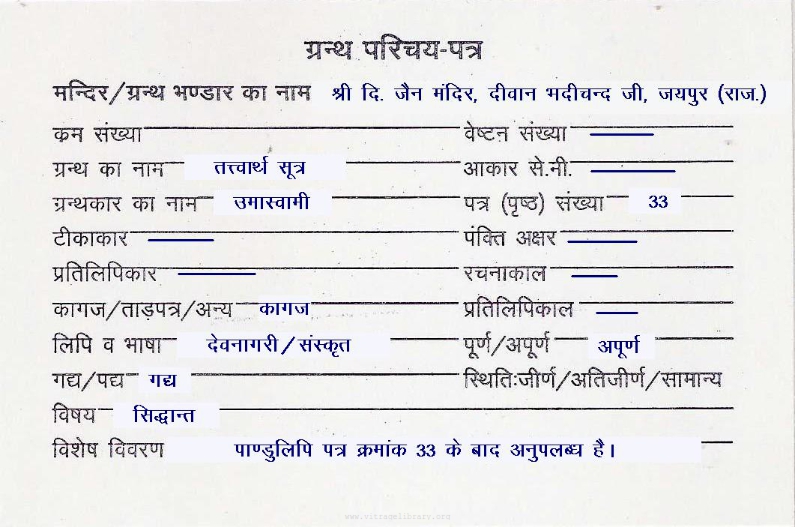 ग्रन्थ परिचय-पत्र
मन्दिर/ग्रन्थ भण्डार का नाम श्री दि. जैन मंदिर, दीवान भदीचन्द जी, जयपुर (राज.)
कम संख्या वेष्टन संख्या
ग्रन्थ का नाम तत्त्वार्थ सूत्र आकार से.मी.
ग्रन्थकार का नाम उमास्वामी पत्र (पृष्ठ) संख्या 33
टीकाकार पंक्ति अक्षर
प्रतिलिपिकार रचनाकाल
कागज/ताड़पत्र/अन्य कागज प्रतिलिपिकाल
लिपि व भाषा देवनागरी/संस्कृत पूर्ण/अपूर्ण अपूर्ण
गद्य/पद्य गद्य स्थितिःजीर्ण/अतिजीर्ण/सामान्य
विषय सिद्धान्त
विशेष विवरण पाण्डुलिपि पत्र क्रमांक 33 के बाद अनुपलब्ध है।